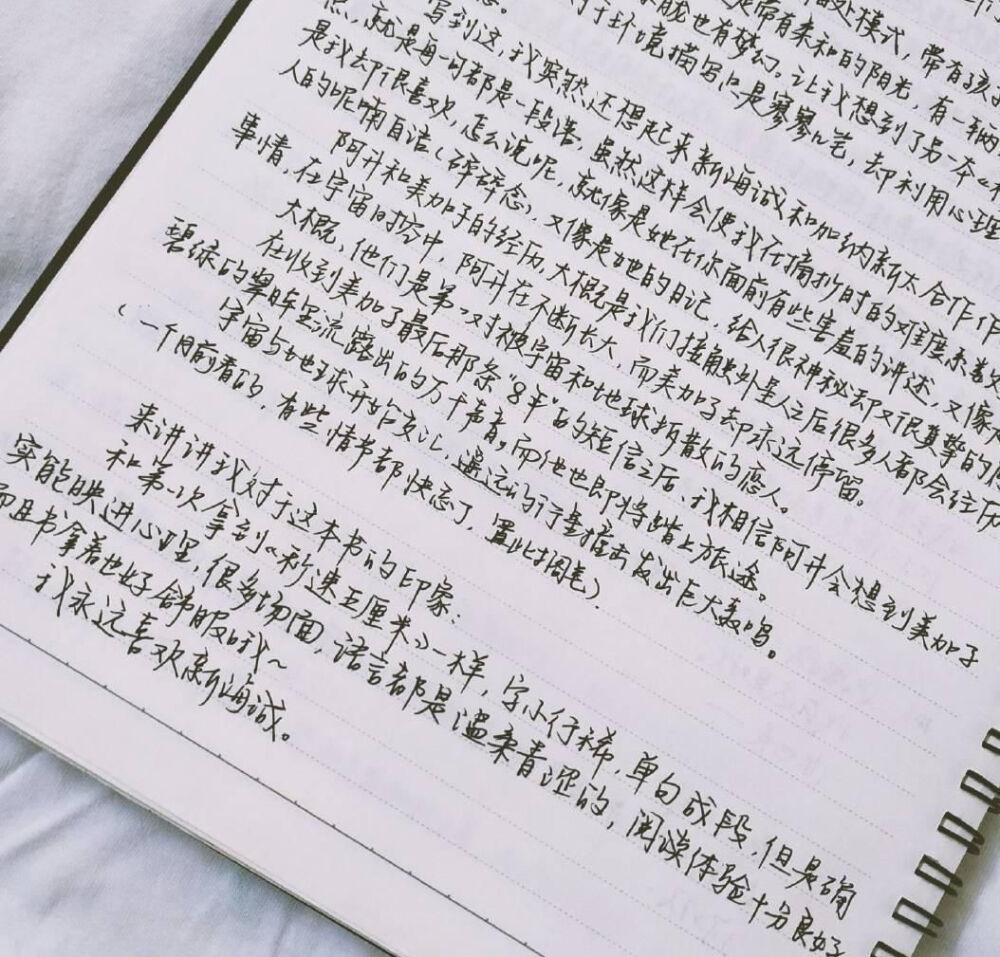 处模式，带有孩
是带有柔和的阳光，有一辆
胧也有梦幻。让我想到了另一本《
行环境描写只是寥寥几笔，却利用心理
写到这，我突然还想起来新海诚和加纳新太合作作
点，就是每一句都是一段落，虽然这样会使我在摘抄时的难度
是我却很喜欢，怎么说呢，就像是她在你面前有些害羞的讲述，又像
人的呢喃自语（碎碎念），又像是她的日记，给人很神秘却又很真挚的
阿升和美加子的经历，大概是我们接触外星人之后很多人都会经历
事情，在宇宙时空中，阿升在不断长大，而美加子却永远停留。
大概，他们是第一对被宇宙和地球拆散的恋人。
在收到美加子最后那条“8年”的短信之后，我相信阿升会想到美加子
碧绿的眸眶里流露出的万千声音。而他也即将踏上旅途。
宇宙与地球开始交汇，遥远的行星撞击发出巨大轰鸣。
（一个月前看的，有些情节都快忘了，置此搁笔）。
来讲讲我对于这本书的印象：
和第一次拿到《秒速五厘米》一样，字小行稀，单句成段，但是确
实能映进心里，很多场面，语言都是温柔青涩的，阅读体验十分良好
而且书拿着也好舒服哦～
我永远喜欢新海诚。